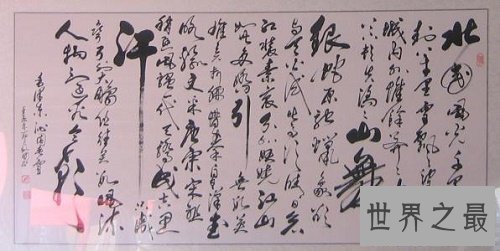 北国风光千里冰
封万里雪飘望长
城内外惟余莽莽大
山舞
银蛇原驰蜡象欲
与天公试比高须晴日看
红装素裹分外妖娆江山
如此多娇引无数英
雄竞折腰惜秦皇汉武
略输文采唐宗宋祖
稍逊风骚一代天骄成吉思
汗只识
弯弓射大雕俱往矣数风流
人物还看今朝
毛泽东沁园春雪
世界之最